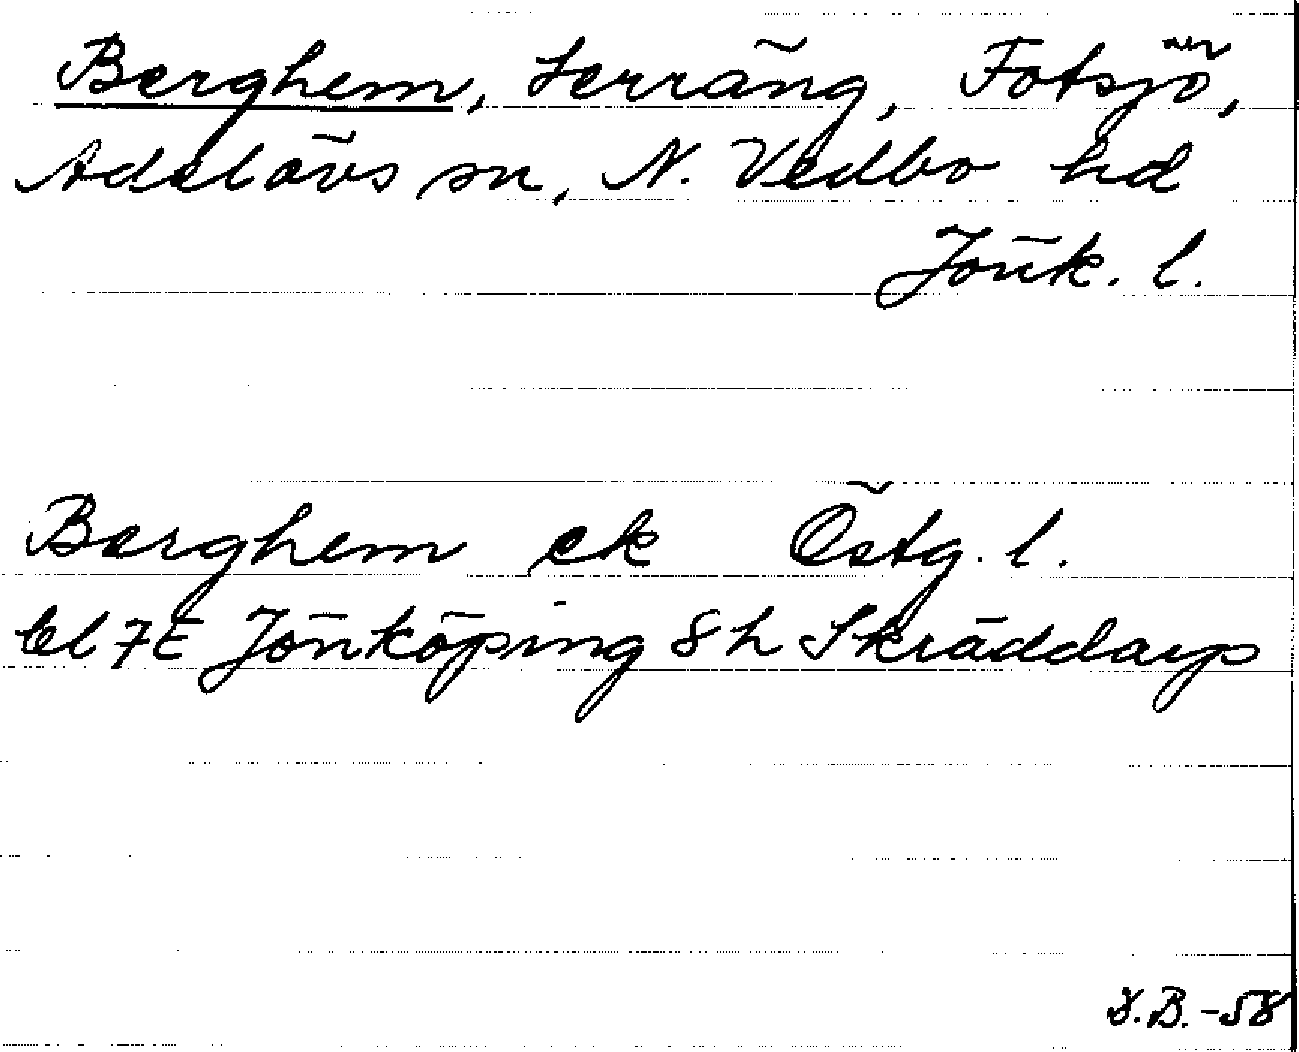 Berghem, terräng, Fotsjön,
Adelövs sn, N. Vedbo hd
Jönk. l.
Berghem ek Östg. l.
bl 7E Jönköping 8h Skräddarp
B. -58